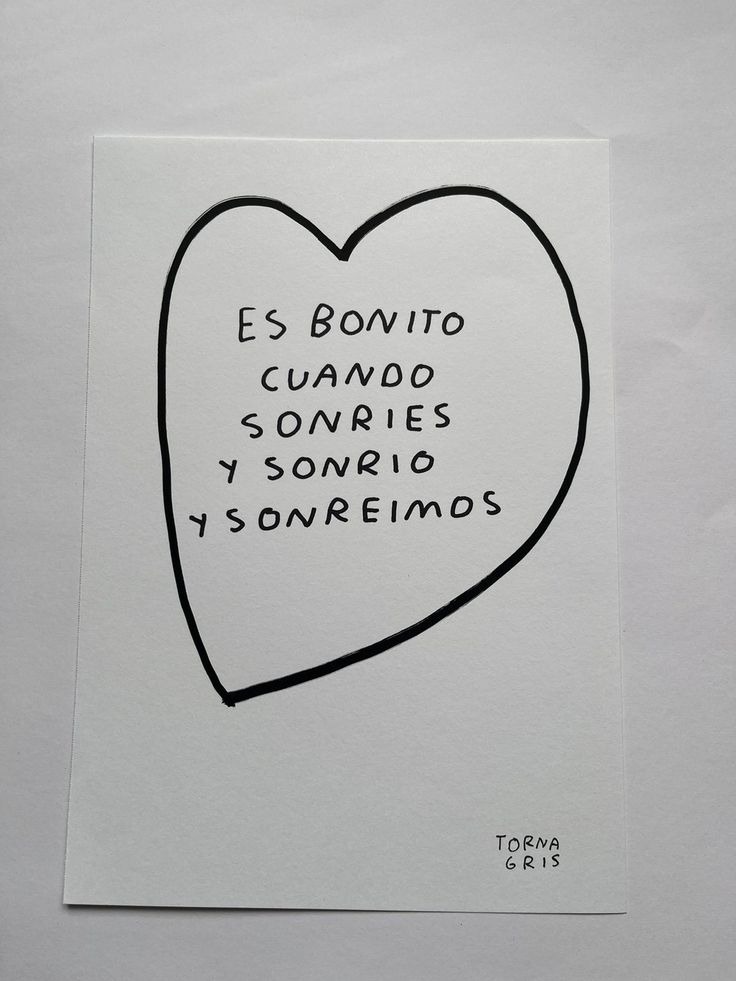 ES BONITO
CUANDO
SONRIES
Y SONRIO
Y SONREIMOS
TORNA
GRIS